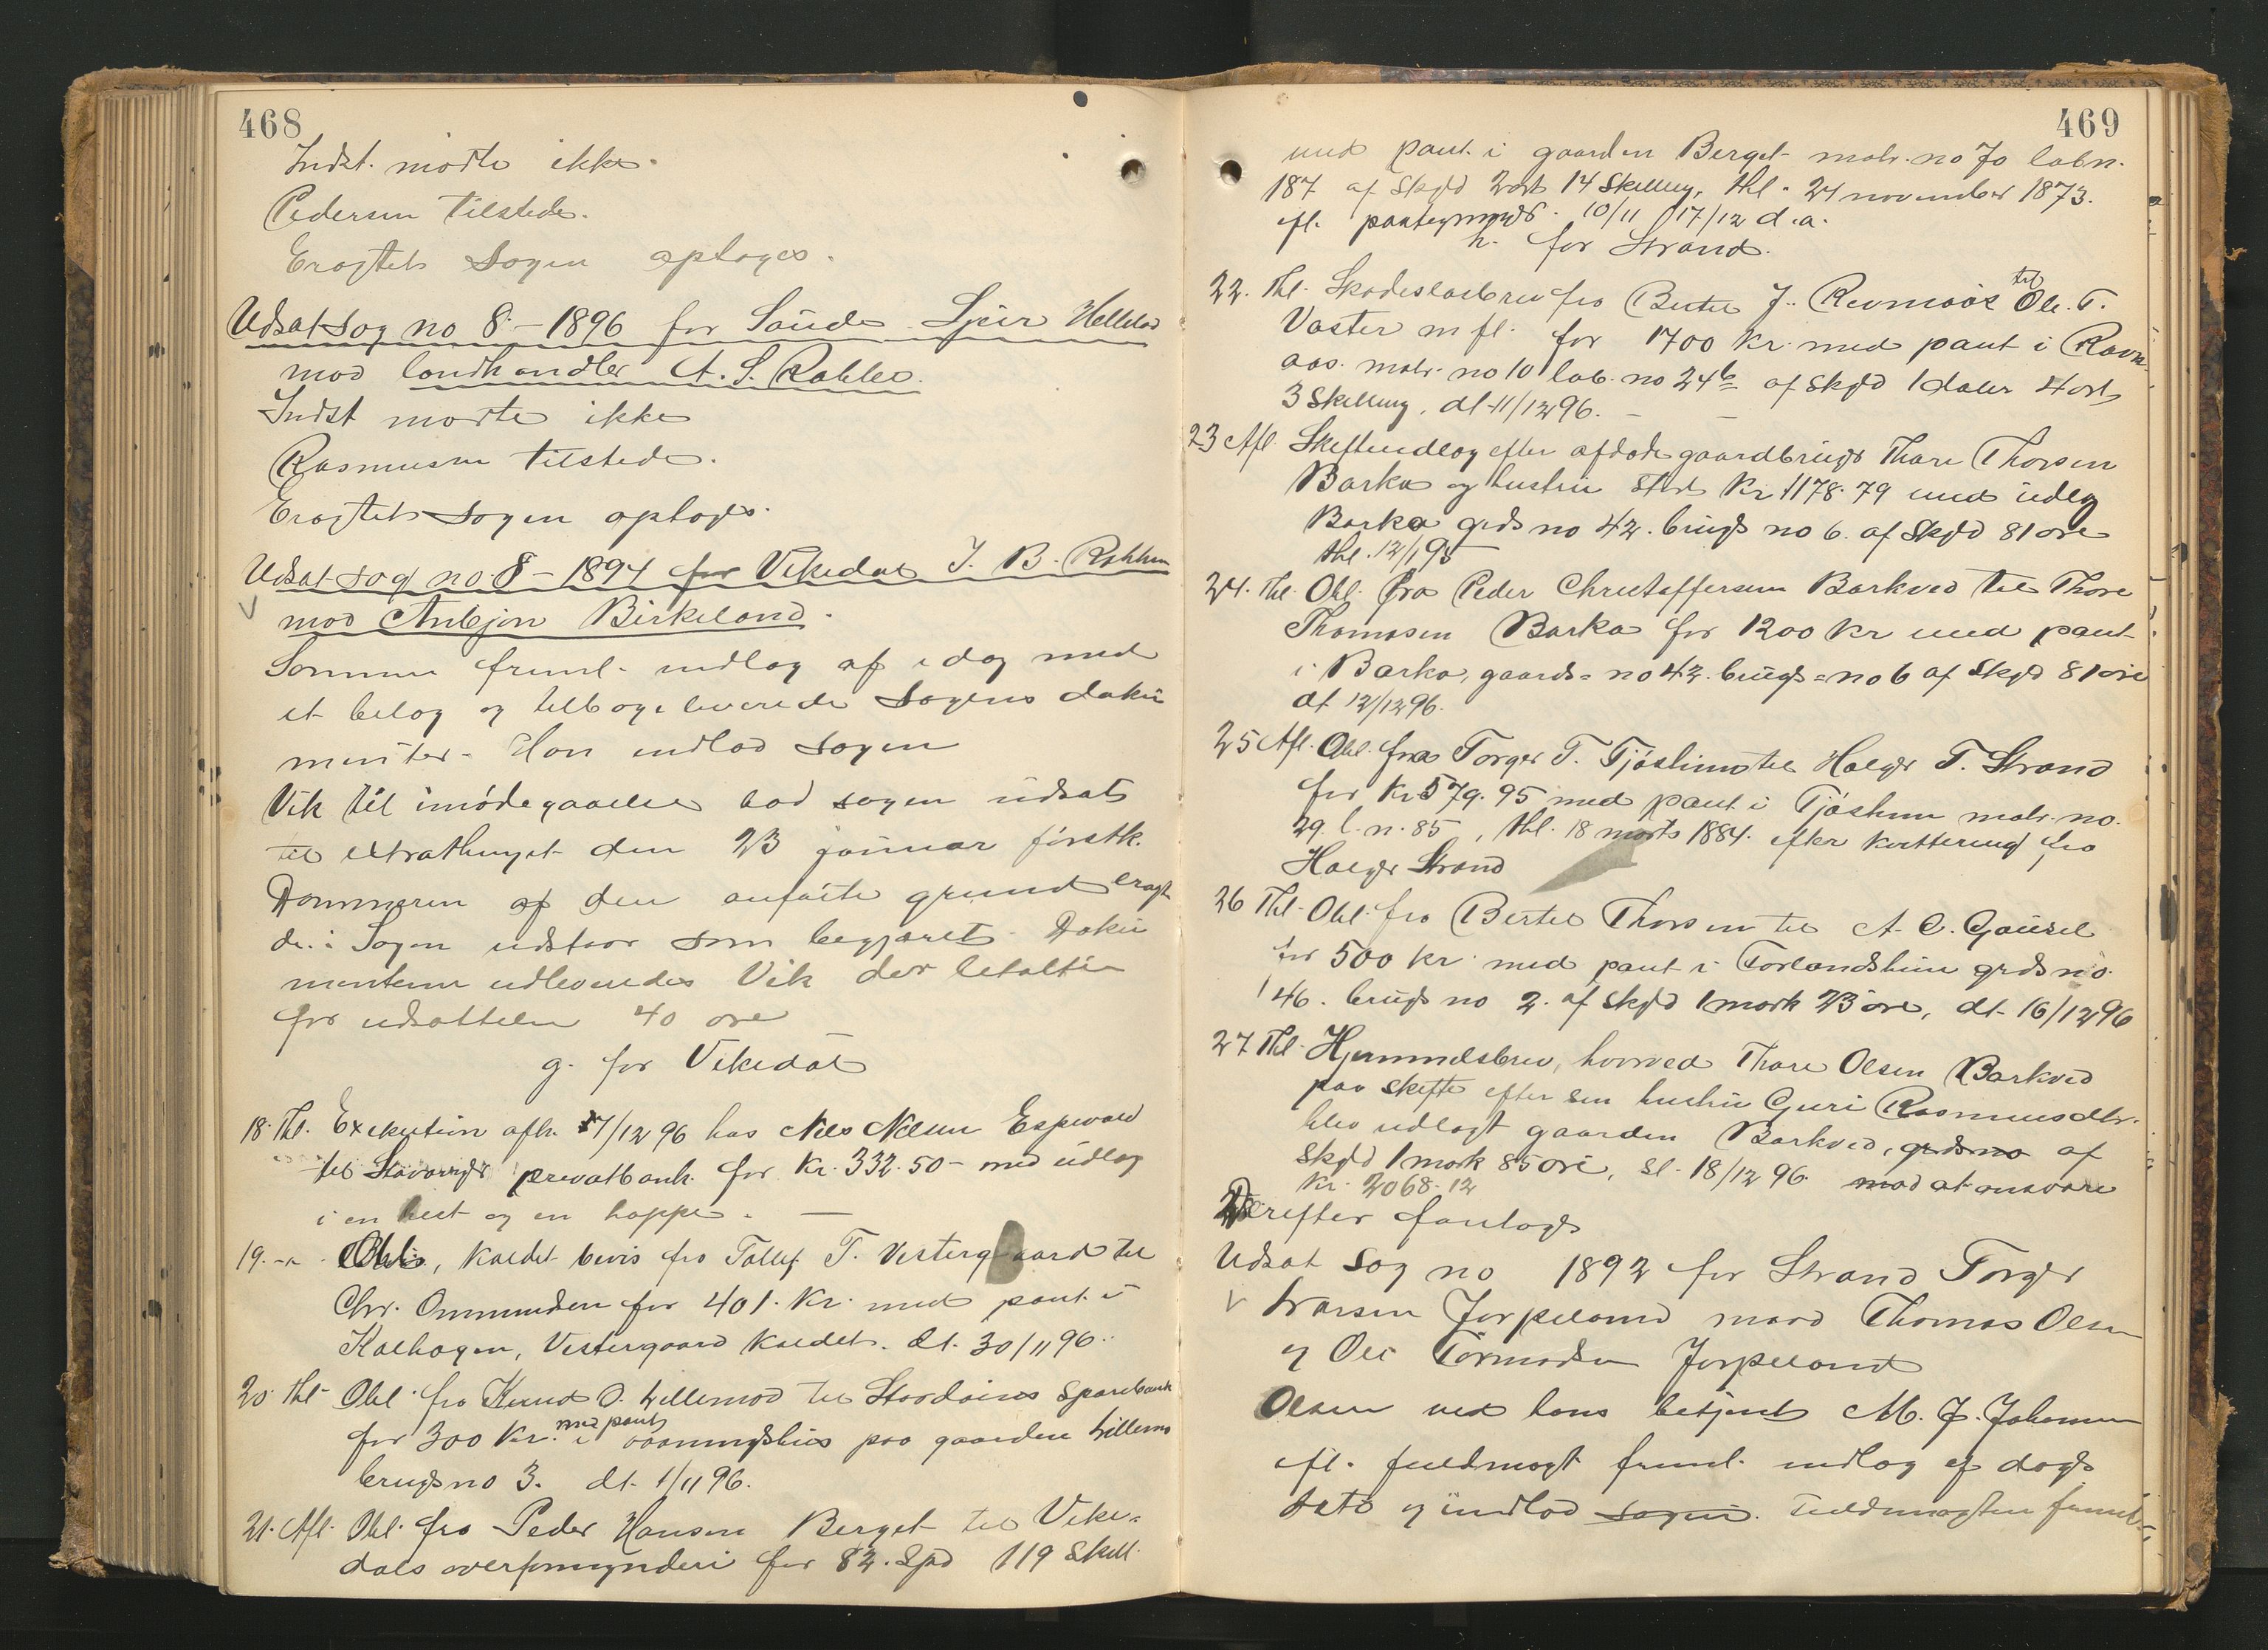 468
Indst. mødte ikke.
Pedersen tilstede.
Eragtet Sagen optages.
Udsat Sag no 8 - 1896 for Saude Sjur Helleland
mod landhandler A. S. Rabbe.
Indst mødte ikke
Rasmussen tilstede.
Eragtet Sagen optages.
Udsat sag no 8 - 1894 for Vikedal J. B.
mod Anbjørn Birkeland.
Sommer freml. indlæg af idag med
et belæg og tilbageleverede Sagens doku
menter. Han indlod sagen
Vik til imødegaaelse bad sagen udsat
til extrathinget den 23 januar førstk.
Dommeren af den anførte grund eragt
de: Sagen udstaar som begjæret. Doku
menterne udleveredes Vik der betalte
for udsættelsen 40 øre
g. for Vikedal
18. Thl. Exekution afh. 7/12 96 hos Nils Nilsen Espevold
til Stavanger privatbank for Kr. 332.50 - med udlæg
i en hest og en hoppe. -
19. -"- Obl., kaldet bevis fra Tollef T. Vestergaard til
Chr. Ommundsen for 401. Kr. med pant i
Kalhagen, Vestergaard kaldet. dt. 30/11 96.
20. thl. Obl. fra Knud O. Lillemo til Stordøens Sparebank
for 300 Kr. med pant i vaaningshus paa gaarden Lillemo
brugsno 3. dt. 1/11 96.
21. Afl. Obl. fra Peder Hansen Berget til Vike-
dals overformynderi for 82. Spd 119 Skill.
469
med pant i gaarden Berget matr. no 70 løbn.
187 af Skyld 2 ort 14 Skilling, thl. 24 november 1873.
efl. 10/11 17/12 d.a.
h. for Strand.
22. Thl. Skadesløsbrev fra Bertel J. Ravnaas til Ole T.
Vaster m fl. for 1700 Kr. med pant i Ravn-
aas. matr. no 10 løb. no 24b af Skyld 1 daler 4 ort
3 Skilling, dt 11/12 96. -
23 Afl. Skifteudlæg efter afdøde gaardbruger Thore Thorsen
Barka og hustru stort Kr 1178.79 med udlæg
Barka grds no 42. brugs no 6. af Skyld 81 øre
thl. 12/1 95
24. Thl. Obl. fra Peder Christoffersen Barkved til Thore
Thomasen Barka for 1200 Kr med pant
i Barka, gaards-no 42. brugs-no 6 af Skyld 81 øre
dt 12/12 96.
25 Afl. Obl. fra Torger T. Tjøstheim til Holger T. Strand
for Kr. 579.95 med pant i Tjøsthem matr. no.
29. l. n. 85, thl. 18 marts 1884. efter kvittering fra
Holger Strand
26 Thl. Obl. fra Bertel Thorsen til A. C. Gausel
for 500 Kr. med pant i Forlandsheim grdsno.
46. brugs no 2. af Skyld 1 mark 23 øre, dt 16/12 96
27 Thl. Hjemmelsbrev, hvorved Thore Olsen Barkved
paa skifte efter sin hustru Guri Rasmusdtr.
blev udlagt gaarden Barkved, grdsno af
Skyld 1 mark 85 øre, sl. 18/12 96. mod at ansvare
Kr. 2068.12
Derefter foretoges
Udsat Sag no 1892 for Strand Torger
Larsen Jørpeland mod Thomas Olsen
og Ole Tormodsen Jørpeland
Olsen ved hans betjent M. J. Johannesen
efl. fuldmagt freml. indlæg af dags
dato og indlod sagen. Fuldmagten freml.